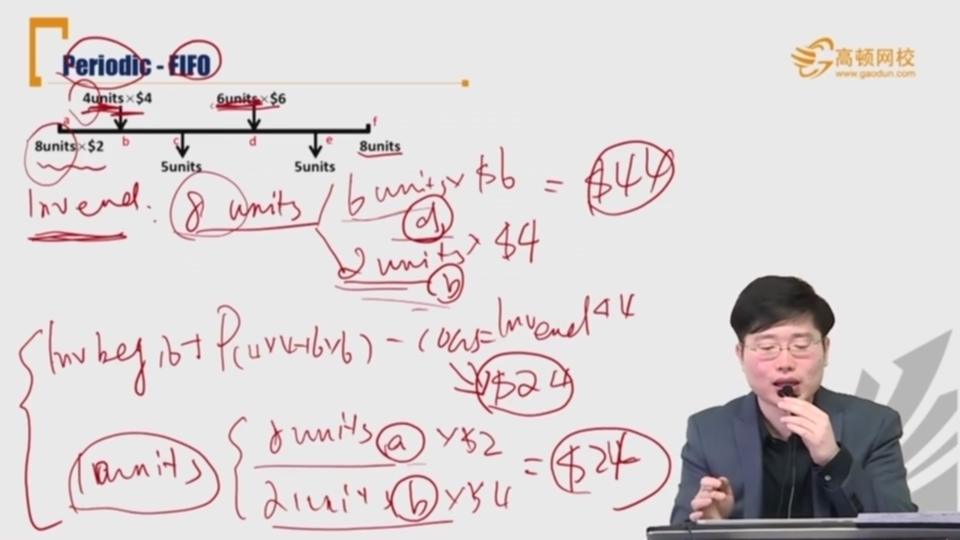 Periodic - FIFO
高顿网校
www.gaodun.com
4units×$4
6units×$6
a
f
8units×$2
b
c
d
e
8units
5units
5units
Inv end.
8 units
6 units × $6 = $44
d
2 units × $4
b
Inv beg 16 + P(4×4+6×6) - COGS = Inv end 44
$24
10 units
8 units a × $2
= $24
2 unit b × $4